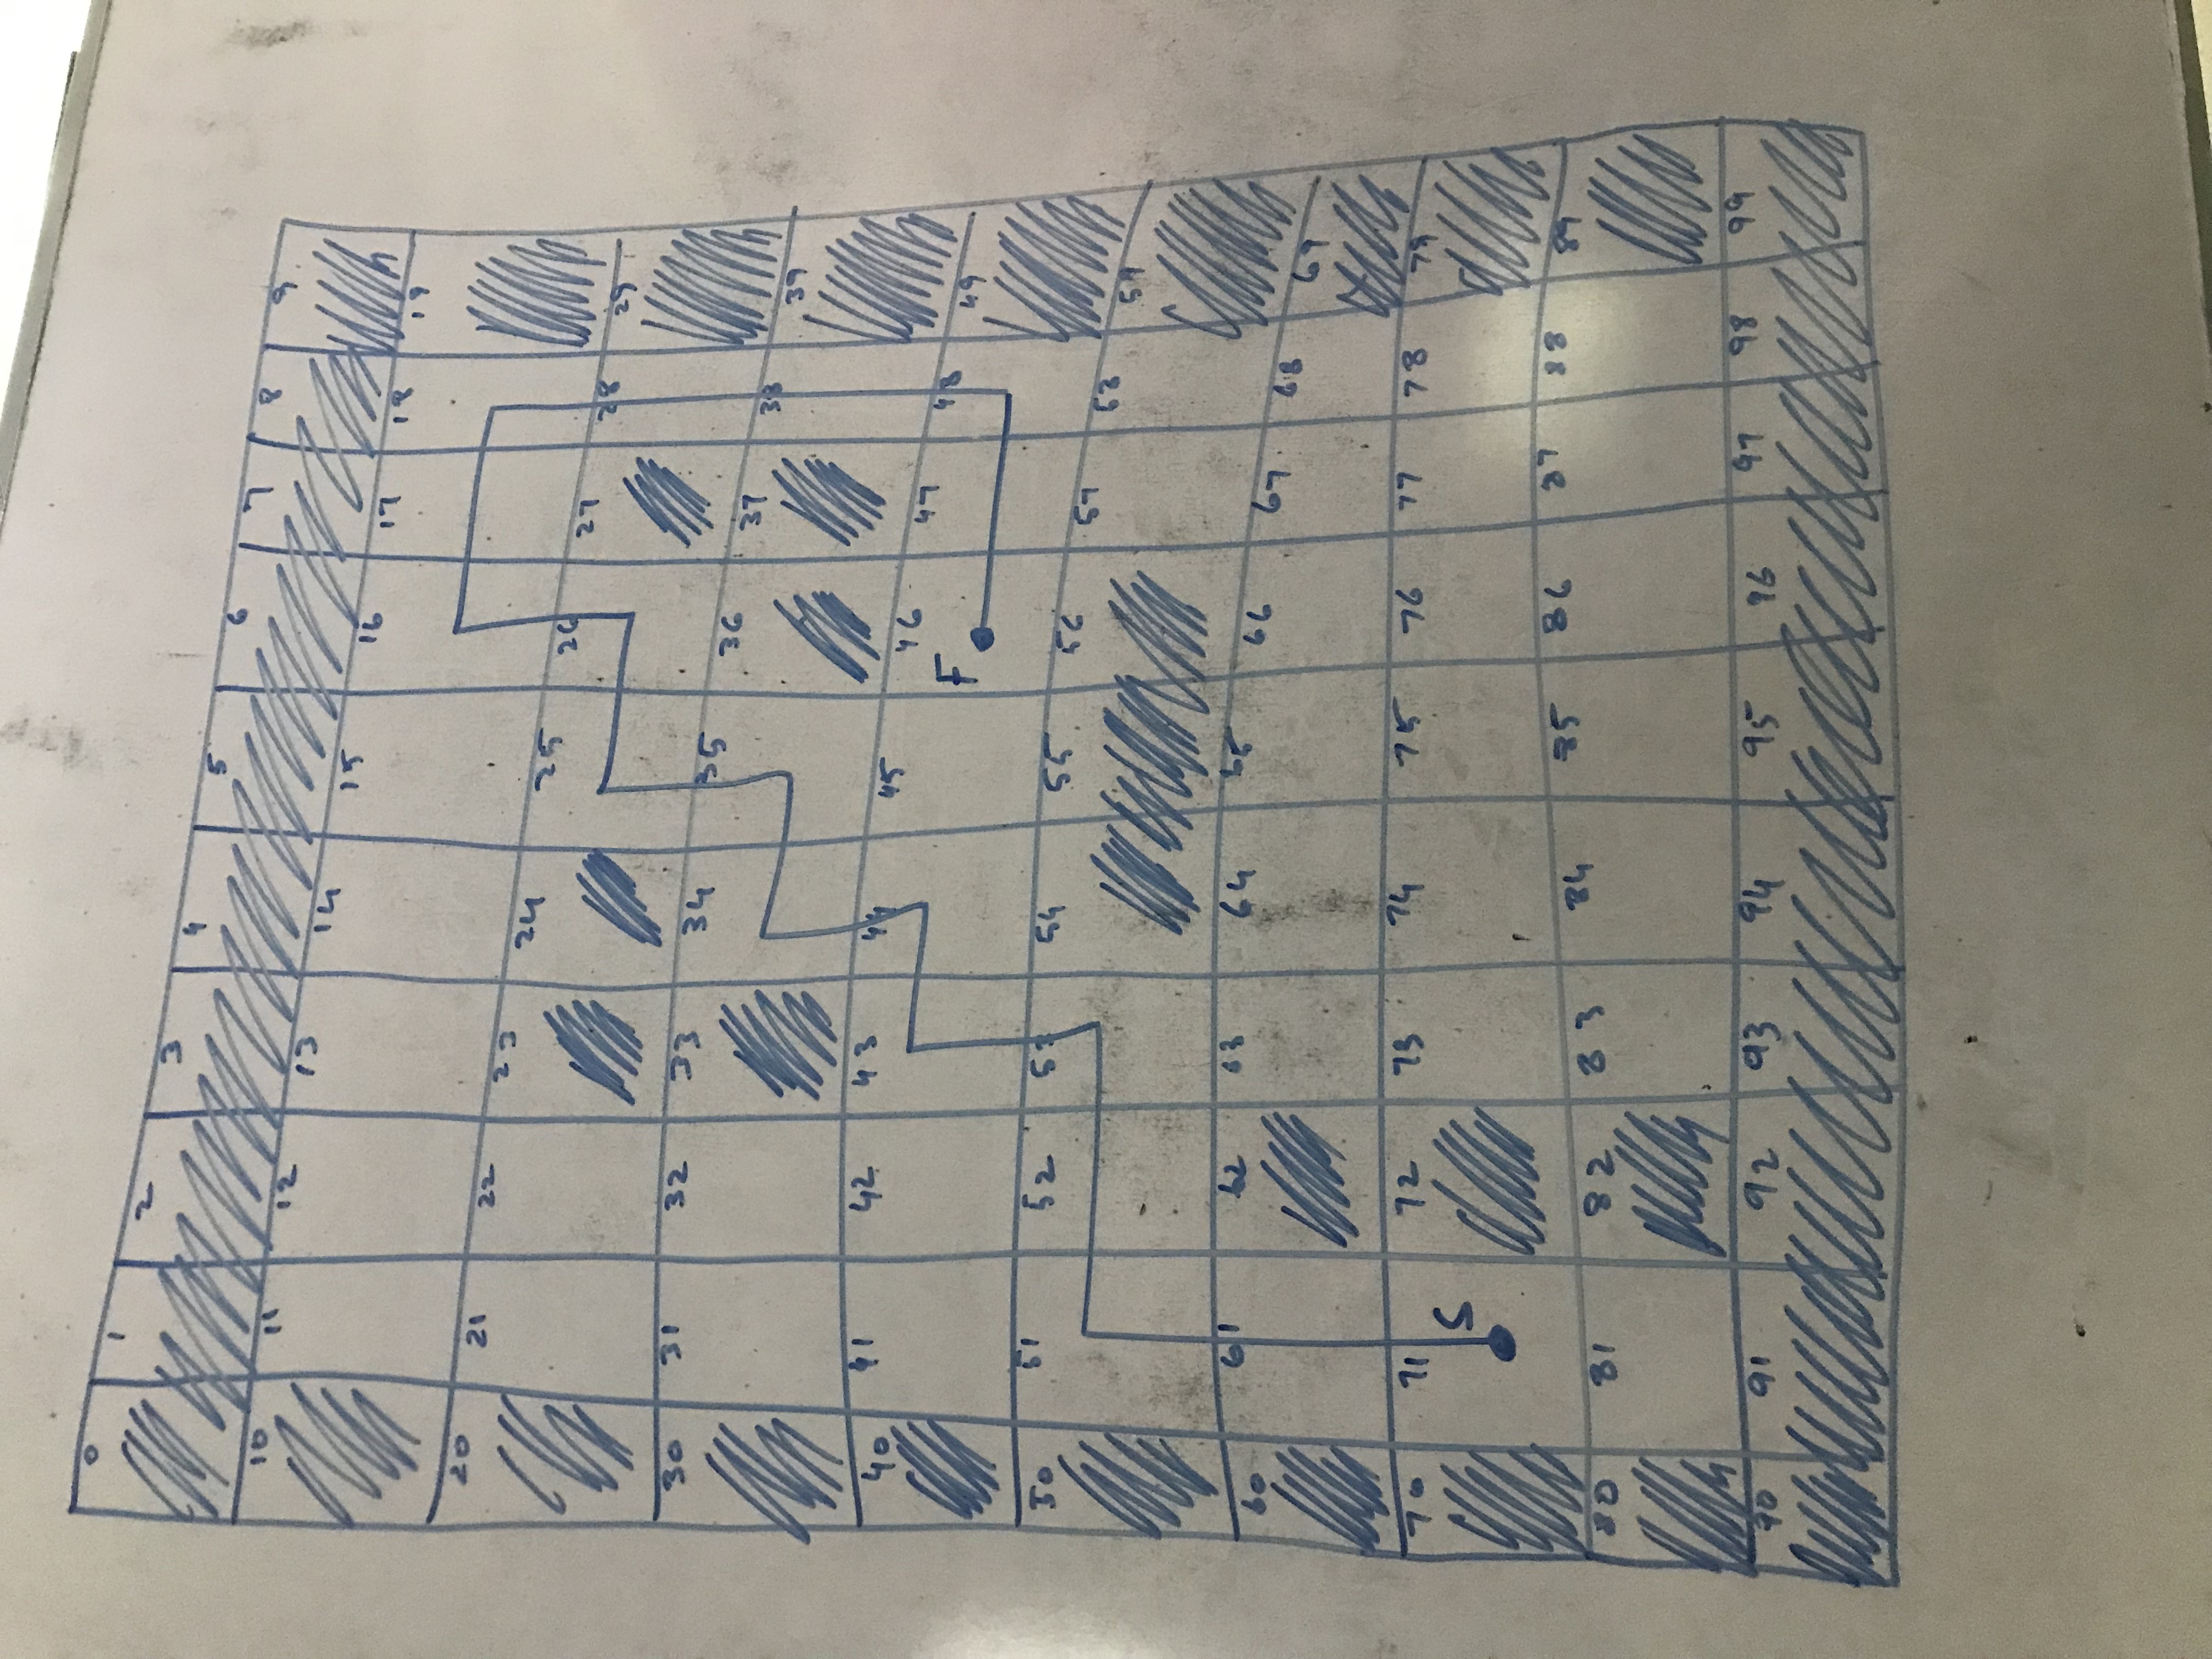 0 1 2 3 4 5 6 7 8 9
10 11 12 13 14 15 16 17 18 19
20 21 22 23 24 25 26 27 28 29
30 31 32 33 34 35 36 37 38 39
40 41 42 43 44 45 46 47 48 49
F
50 51 52 53 54 55 56 57 58 59
60 61 62 63 64 65 66 67 68 69
70 71 72 73 74 75 76 77 78 79
S
80 81 82 83 84 85 86 87 88 89
90 91 92 93 94 95 96 97 98 99